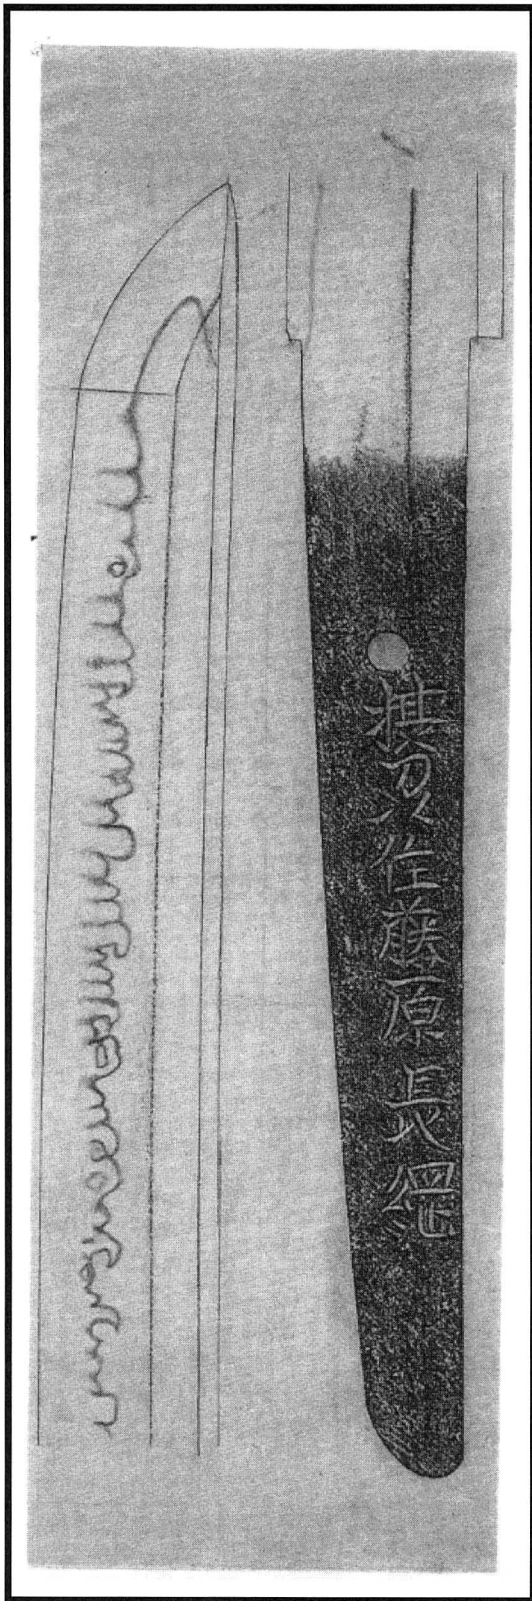 摂刕住藤原長綱